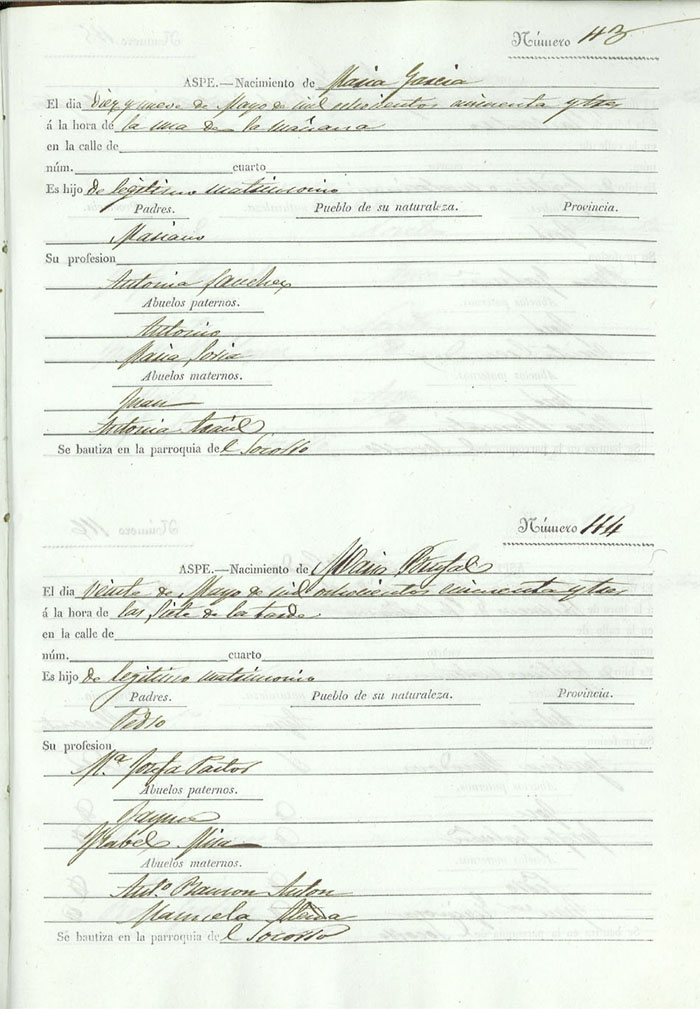 Número 43
ASPE.—Nacimiento de Maria Garcia
El dia diez y nueve de Mayo de mil ochocientos cincuenta y tres
á la hora de la una de la mañana
en la calle de
núm. cuarto
Es hijo de legitimo matrimonio
Padres. Pueblo de su naturaleza. Provincia.
Mariano
Su profesion
Antonia Sanchez
Abuelos paternos.
Antonio
Maria Soria
Abuelos maternos.
Juan
Antonia
Se bautiza en la parroquia del Socorro
Número 114
ASPE.—Nacimiento de Maria Brufal
El dia veinte de Mayo de mil ochocientos cincuenta y tres
á la hora de las siete de la tarde
en la calle de
núm. cuarto
Es hijo de legitimo matrimonio
Padres. Pueblo de su naturaleza. Provincia.
Pedro
Su profesion
Mª Josefa Pastor
Abuelos paternos.
Jayme
Ysabel Mira
Abuelos maternos.
Antº
Manuela
Sé bautiza en la parroquia del Socorro